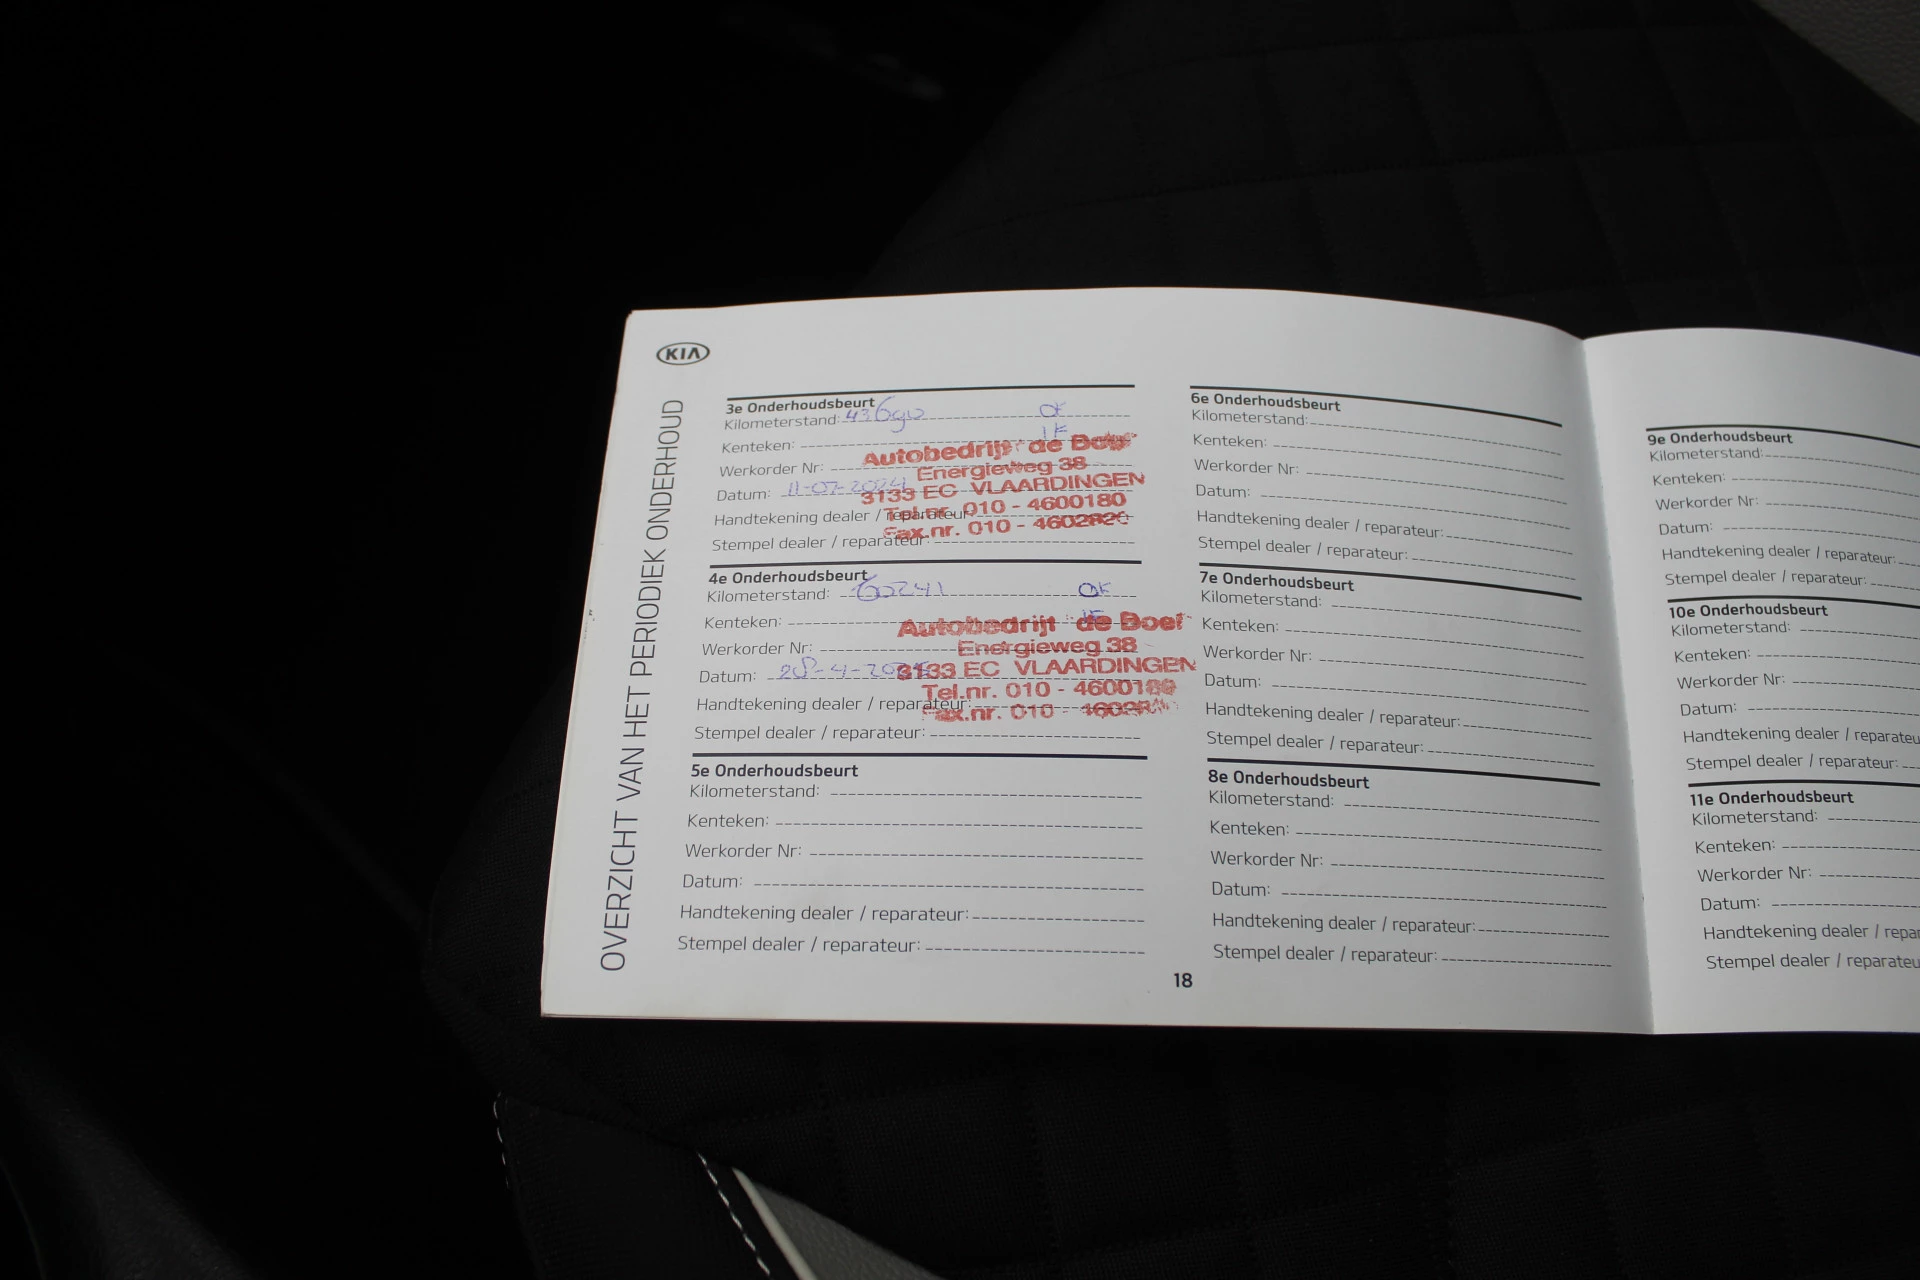 KIA
OVERZICHT VAN HET PERIODIEK ONDERHOUD
3e Onderhoudsbeurt
Kilometerstand: 43690 OK
Kenteken:
Werkorder Nr:
Datum: 11-07-2024
Handtekening dealer / reparateur:
Stempel dealer / reparateur:
Autobedrijf de Boer
Energieweg 38
3133 EC VLAARDINGEN
Tel.nr. 010 - 4600180
Fax.nr. 010 - 4602820
4e Onderhoudsbeurt
Kilometerstand: 60241 OK
Kenteken:
Werkorder Nr:
Datum:
Handtekening dealer / reparateur:
Stempel dealer / reparateur:
Autobedrijf de Boer
Energieweg 38
3133 EC VLAARDINGEN
Tel.nr. 010 - 4600180
Fax.nr. 010
5e Onderhoudsbeurt
Kilometerstand:
Kenteken:
Werkorder Nr:
Datum:
Handtekening dealer / reparateur:
Stempel dealer / reparateur:
6e Onderhoudsbeurt
Kilometerstand:
Kenteken:
Werkorder Nr:
Datum:
Handtekening dealer / reparateur:
Stempel dealer / reparateur:
7e Onderhoudsbeurt
Kilometerstand:
Kenteken:
Werkorder Nr:
Datum:
Handtekening dealer / reparateur:
Stempel dealer / reparateur:
8e Onderhoudsbeurt
Kilometerstand:
Kenteken:
Werkorder Nr:
Datum:
Handtekening dealer / reparateur:
Stempel dealer / reparateur:
18
9e Onderhoudsbeurt
Kilometerstand:
Kenteken:
Werkorder Nr:
Datum:
Handtekening dealer / reparateur:
Stempel dealer / reparateur:
10e Onderhoudsbeurt
Kilometerstand:
Kenteken:
Werkorder Nr:
Datum:
Handtekening dealer / reparateu
Stempel dealer / reparateur:
11e Onderhoudsbeurt
Kilometerstand:
Kenteken:
Werkorder Nr:
Datum:
Handtekening dealer / repar
Stempel dealer / reparateu